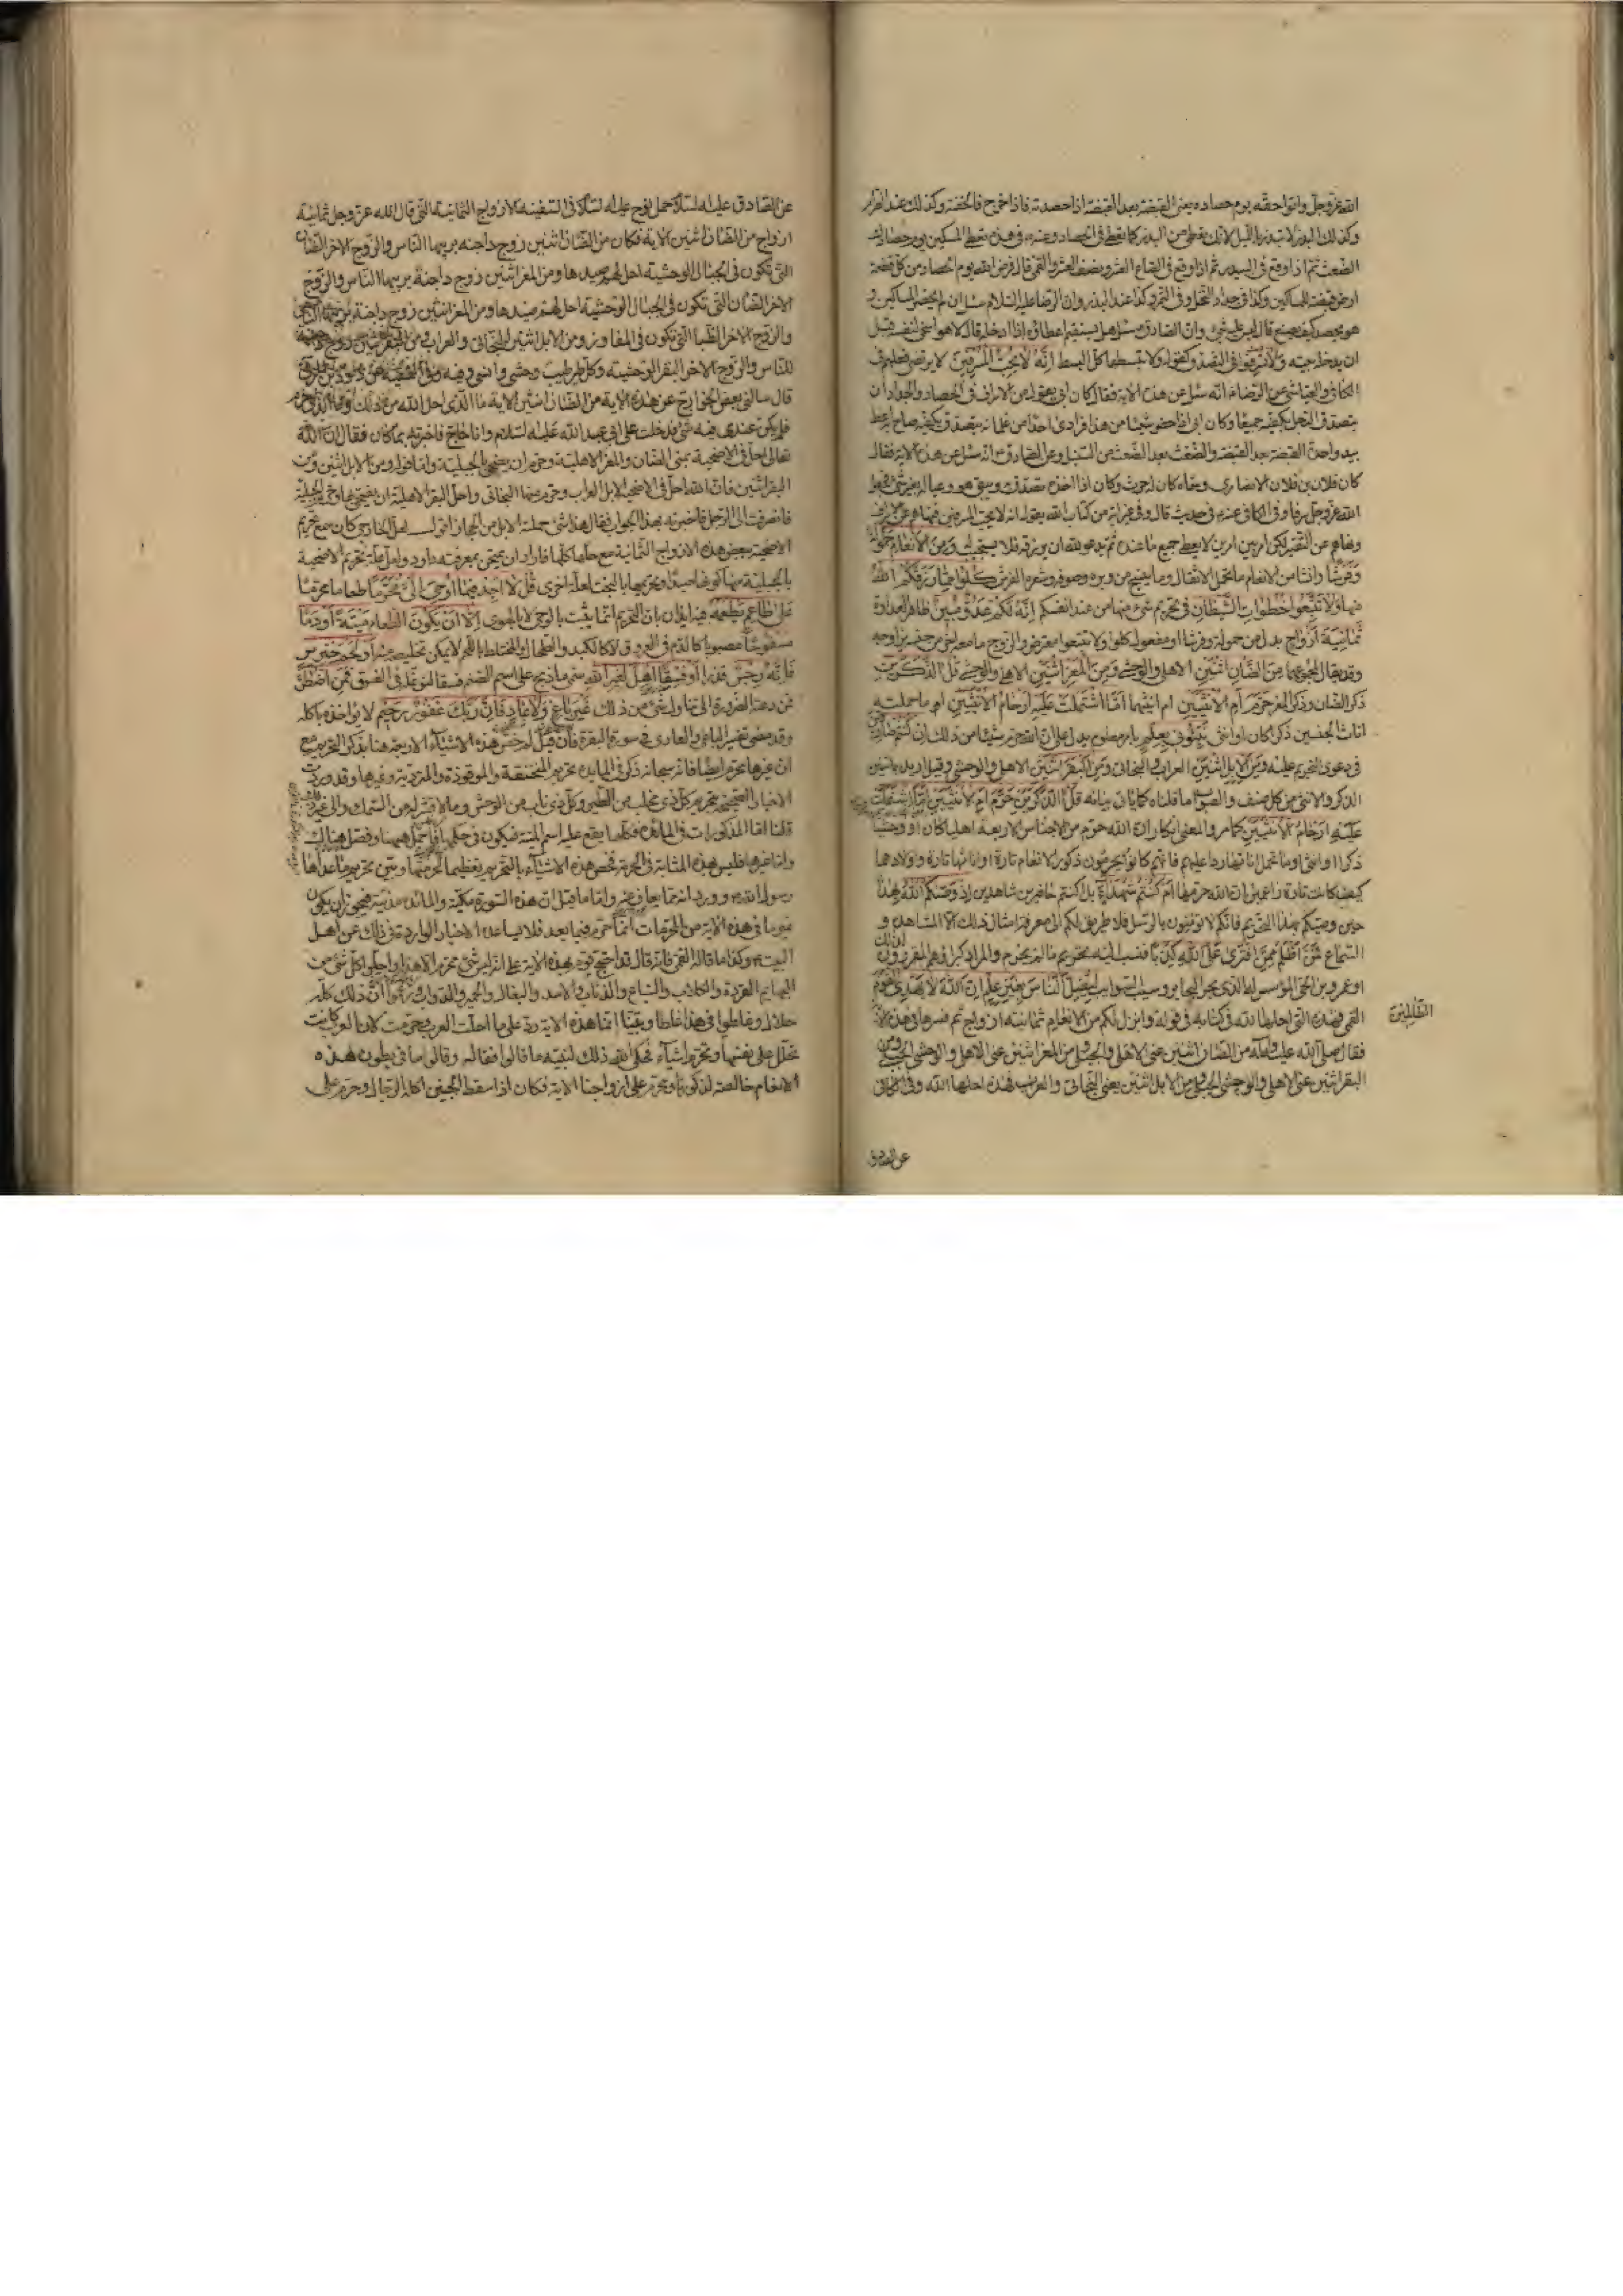 الله عز وجل واتوا حقه يوم حصاده يعني القبضة بعد القبضة اذا حصدته فاذا خرج فالحفنة وكذلك عند الصرام
وكذلك البذر لا تبذر بالليل لانك تعطي من البذر كما تعطي في الحصاد وعنه في هذه تعطي المسكين يوم حصادك
الضغث ثم اذا وقع في البيدر ثم اذا وقع في الصاع العشر ونصف العشر والقمي قال فرض الله يوم الحصاد من كل قطعة
ارض قبضة للمساكين وكذا في جداد النخل وفي التمر وكذا عند البذر وان الرضا عليه السلام سئل ان لم يحضر المساكين و
هو يحصد كيف يصنع قال ليس عليه شيء وان الصادق سئل هل يستقيم اعطاؤه اذا ادخله قال لا هو اسخى لنفسه قبل
ان يدخله بيته ولا تسرفوا في التصدق كقوله ولا تبسطها كل البسط انه لا يحب المسرفين لا يرتضي فعلهم في
الكافي والعياشي عن الرضا انه سئل عن هذه الاية فقال كان ابي يقول من الاسراف في الحصاد والجداد ان
يتصدق الرجل بكفيه جميعا وكان ابي اذا حضر شيئا من هذا فراى احدا من غلمانه يتصدق بكفيه صاح به اعط
بيد واحدة القبضة بعد القبضة والضغث بعد الضغث من السنبل وعن الصادق انه سئل عن هذه الاية فقال
كان فلان بن فلان الانصاري وسماه كان له حرث وكان اذا اخذه يتصدق به ويبقى هو وعياله بغير شيء فجعل
الله عز وجل سرفا وفي الكافي عنه في حديث قال وفي غير اية من كتاب الله يقول انه لا يحب المسرفين فنهاهم عن الاسراف
ونهاهم عن التقتير لكن امر بين امرين لا يعطي جميع ما عنده ثم يدعو الله ان يرزقه فلا يستجيب له ومن الانعام حمولة
وفرشا وانشا من الانعام ما تحمل الاثقال وما ينسج من وبره وصوفه وشعره الفرش كلوا مما رزقكم الله
منها ولا تتبعوا خطوات الشيطان في تحريم شيء منها من عند انفسكم انه لكم عدو مبين ظاهر العداوة
ثمانية ازواج بدل من حمولة وفرشا او مفعول كلوا ولا تتبعوا معترض والزوج ما معه اخر من جنسه يزاوجه
وقد يقال لمجموعهما من الضان اثنين الاهلي والوحشي ومن المعز اثنين الاهلي والوحشي قل الذكرين
ذكر الضان وذكر المعز حرم ام الانثيين ام انثييهما اما اشتملت عليه ارحام الانثيين ام ما حملت
اناث الجنسين ذكرا كان او انثى نبئوني بعلم بامر معلوم يدل على ان الله حرم شيئا من ذلك ان كنتم صادقين
في دعوى التحريم عليه ومن الابل اثنين العراب والبخاتي ومن البقر اثنين الاهلي والوحشي وقيل اريد بالاثنين
الذكر والانثى من كل صنف والصواب ما قلناه كما ياتي بيانه قل الذكرين حرم ام الانثيين اما اشتملت
عليه ارحام الانثيين كما مر والمعنى انكار ان الله حرم من الاجناس الاربعة اهليا كان او وحشيا
ذكرا او انثى او ما تحمل اناثها ردا عليهم فانهم كانوا يحرمون ذكور الانعام تارة واناثها تارة واولادها
كيف كانت تارة زاعمين ان الله حرمها ام كنتم شهداء بل اكنتم حاضرين شاهدين اذ وصيكم الله بهذا
حين وصيكم بهذا التحريم فانكم لا تؤمنون بالرسل فلا طريق لكم الى معرفة امثال ذلك الا المشاهدة و
السماع فمن اظلم ممن افترى على الله كذبا فنسب اليه تحريم ما لم يحرم والمراد كبراؤهم المقررون لذلك
او عمرو بن لحي المؤسس له الذي بحر البحاير وسيب السوائب ليضل الناس بغير علم ان الله لا يهدي القوم
الظالمين
القمي فهذه التي احلها الله في كتابه في قوله وانزل لكم من الانعام ثمانية ازواج ثم فسرها في هذه الاية
فقال صلى الله عليه واله من الضان اثنين عنى الاهلي والجبلي ومن المعز اثنين عنى الاهلي والوحشي الجبلي ومن
البقر اثنين عنى الاهلي والوحشي الجبلي ومن الابل اثنين يعني البخاتي والعراب فهذه احلها الله وفي الكافي
عن الصادق
عن الصادق عليه السلام حمل نوح عليه السلام في السفينة الازواج الثمانية التي قال الله عز وجل ثمانية
ازواج من الضان اثنين الاية فكان من الضان اثنين زوج داجنة يربيها الناس والزوج الاخر الضان
التي تكون في الجبال الوحشية احل لهم صيدها ومن المعز اثنين زوج داجنة يربيها الناس والزوج
الاخر الضان التي تكون في الجبال الوحشية احل لهم صيدها ومن المعز اثنين زوج داجنة يربيها الناس
والزوج الاخر الظبا التي تكون في المفاوز ومن الابل اثنين البخاتي والعراب ومن البقر اثنين زوج داجنة
للناس والزوج الاخر البقر الوحشية وكل طير طيب وحشي وانسي وفيه وفي الفقيه عن داود الرقي
قال سالني بعض الخوارج عن هذه الاية من الضان اثنين الاية ما الذي احل الله من ذلك وما الذي حرم
فلم يكن عندي فيه شيء فدخلت على ابي عبد الله عليه السلام وانا حاج فاخبرته بما كان فقال ان الله
تعالى احل في الاضحية بمنى الضان والمعز الاهلية وحرم ان يضحى بالجبلية واما قوله ومن الابل اثنين ومن
البقر اثنين فان الله احل في الاضحية الابل العراب وحرم منها البخاتي واحل البقر الاهلية ان يضحى بها وحرم الجبلية
فانصرفت الى الرجل فاخبرته بهذا الجواب فقال هذا شيء حملته الابل من الحجاز اقول لعل الخارجي كان سمع تحريم
الاضحية ببعض هذه الازواج الثمانية مع حلها كلها فاراد ان يمتحن بمعرفته داود ولعل علة تحريم الاضحية
بالجبلية منها كونها صيدا وتحريمها بالبخت لعلة اخرى قل لا اجد فيما اوحي الي محرما طعاما محرما
على طاعم يطعمه فيه ايذان بان التحريم انما يثبت بالوحي لا بالهوى الا ان يكون الطعام ميتة او دما
مسفوحا مصبوبا كالدم في العروق لا كالكبد والطحال والمختلط باللحم لا يمكن تخليصه منه او لحم خنزير
فانه رجس قذر او فسقا اهل لغير الله به سمي ما ذبح على اسم الصنم فسقا لتوغله في الفسق فمن اضطر
فمن دعته الضرورة الى تناول شيء من ذلك غير باغ ولا عاد فان ربك غفور رحيم لا يؤاخذه باكله
وقد مضى تفسير الباغي والعادي في سورة البقرة فان قيل لم خص هذه الاشياء الاربعة هنا بذكر التحريم مع
ان غيرها محرم ايضا فانه سبحانه ذكر في المايدة تحريم المنخنقة والموقوذة والمتردية وغيرها وقد وردت
الاخبار الصحيحة بتحريم كل ذي مخلب من الطير وكل ذي ناب من الوحش وما لا قشر له من السمك والى غير ذلك
قلنا اما المذكورات في المائدة فكلها يقع عليه اسم الميتة فيكون في حكمها فاجمل هيهنا وفصل هناك
واما غيرها فليس بهذه المثابة في الحرمة فخص هذه الاشياء بالتحريم تعظيما لحرمتها وبين تحريم ما عداها
رسول الله وورد انه مما يعاف عنه واما ما قيل ان هذه السورة مكية والمائدة مدنية فيجوز ان يكون
غير ما في هذه الاية من المحرمات انما حرم فيما بعد فلا يساعده الاخبار الواردة في ذلك عن اهل
البيت وكذا ما قاله القمي فانه قال قد احتج قوم بهذه الاية على انه ليس شيء محرم الا هذا واحلوا كل شيء من
البهايم القردة والكلاب والسباع والذئاب والاسد والبغال والحمير والدواب وزعموا ان ذلك كله
حلال وغلطوا في هذا غلطا وبينا انما هذه الاية رد على ما احلت العرب وحرمت لان العرب كانت
تحلل على نفسها وتحرم اشياء فحكى الله ذلك لنبيه ما قالوا فقال وقالوا ما في بطون هذه
الانعام خالصة لذكورنا ومحرم على ازواجنا الاية فكان اذا سقط الجنين اكله الرجال وحرم على